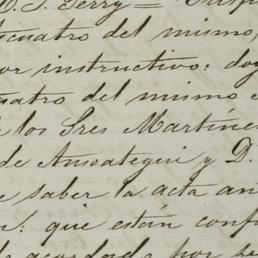 D. J. Terry =
ticuatro del mismo,
or instructivo: doy
cuatro del mismo
los Sres Martíne
de Amoategui y D.
saber la acta an
que están conf